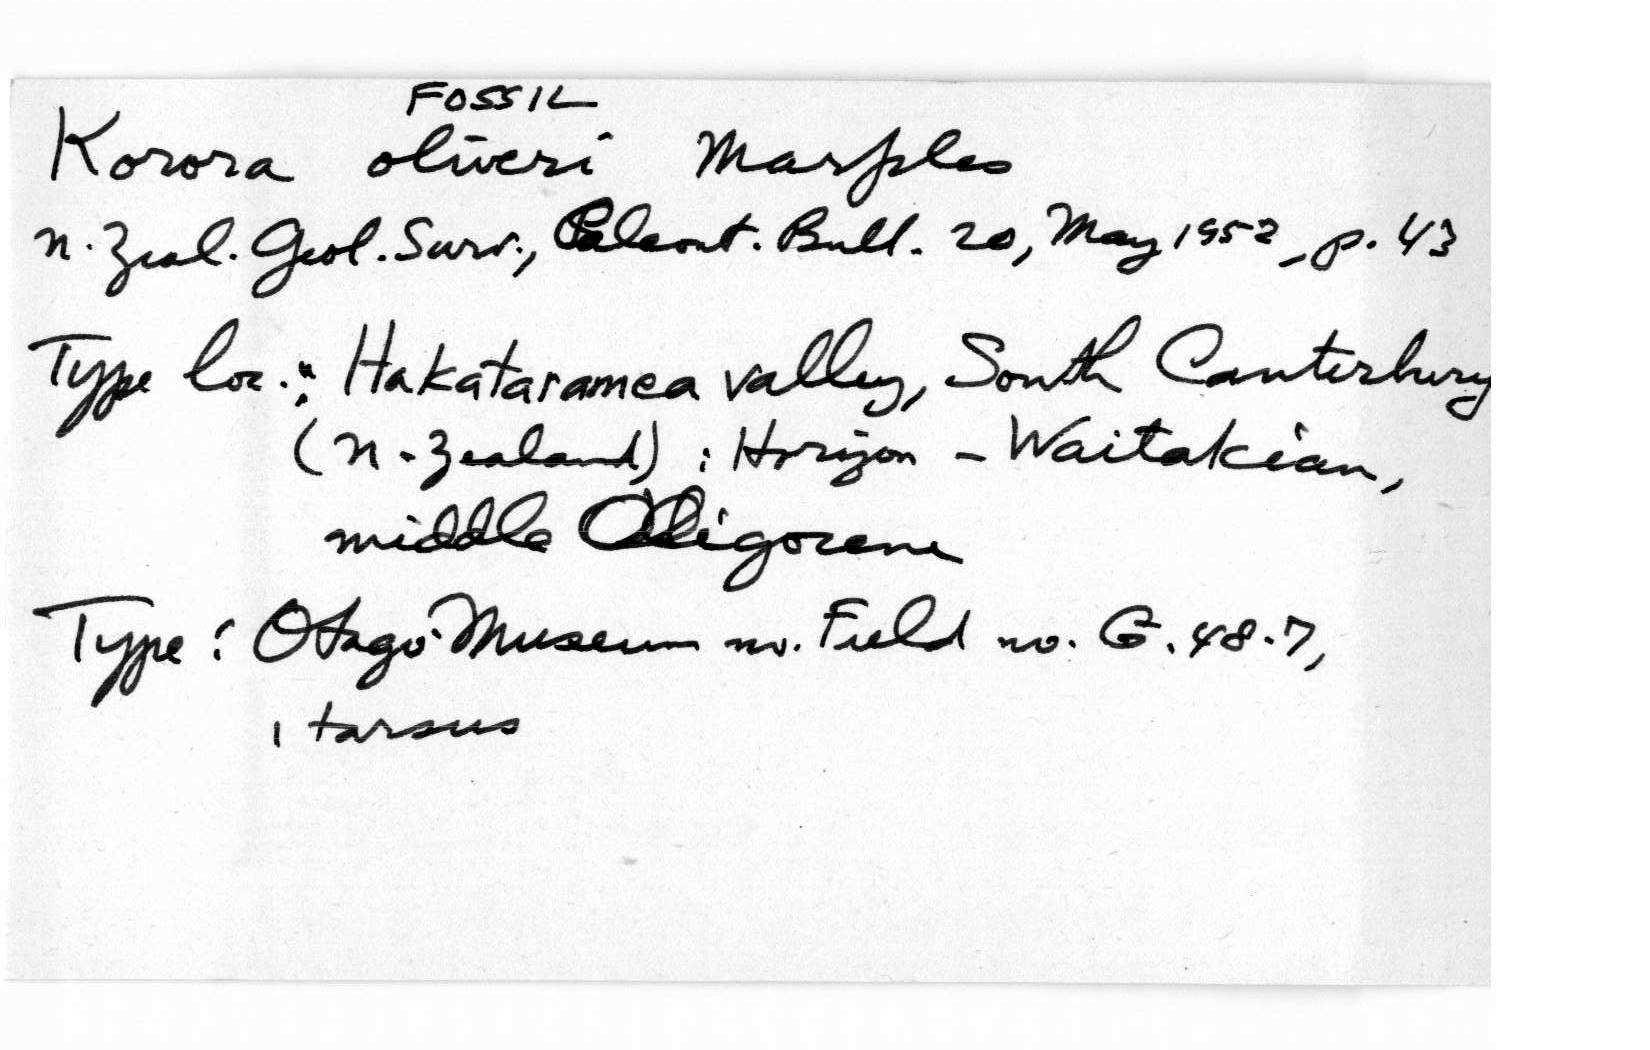 FOSSIL
Korora oliveri Marples
N. Zeal. Geol. Surv., Paleont. Bull. 20, May 1952, p. 43
Type loc.: Hakataramea valley, South Canterbury
(N. Zealand); Horizon - Waitakian,
middle Oligocene
Type: Otago Museum no. Field no. G. 48.7,
1 tarsus